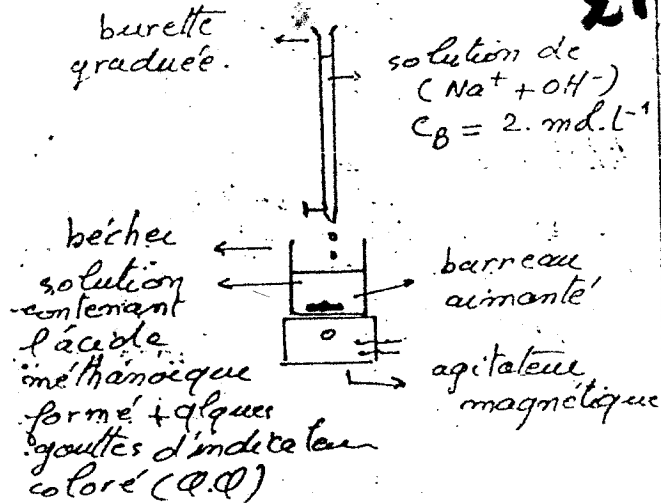 burette
graduée.
solution de
(Na⁺ + OH⁻)
C_B = 2. mol.l⁻¹
bécher
solution
contenant
l'acide
méthanoïque
formé + qlques
gouttes d'indicateu
coloré (Φ.Φ)
barreau
aimanté
agitateur
magnétique